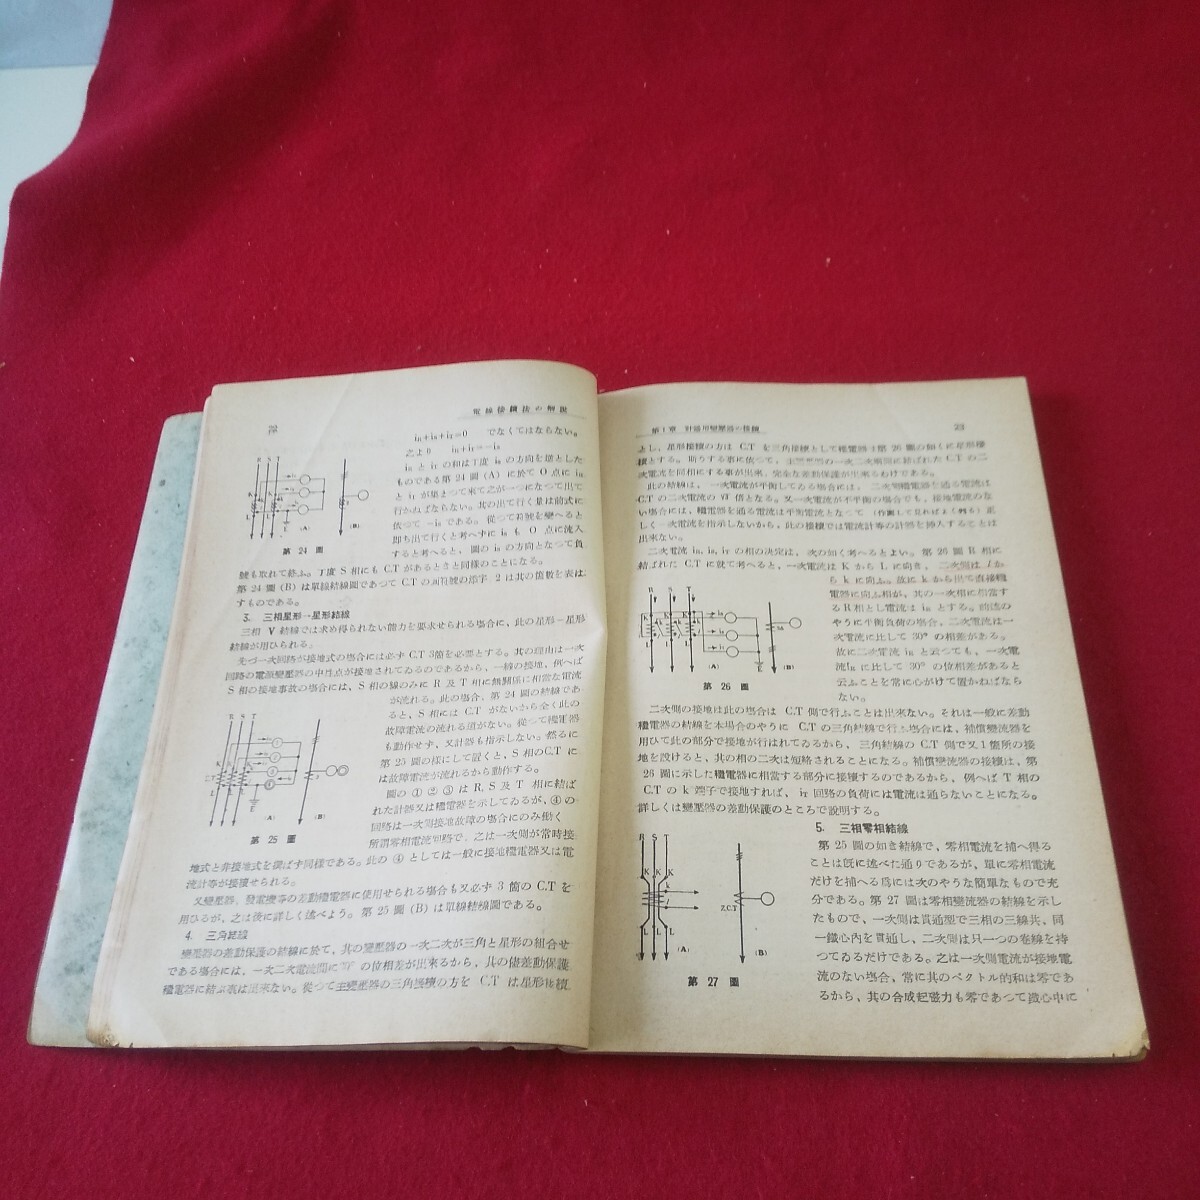 電線接續法の解説
iR+iS+iT=0 でなくてはならない。
之より iR+iT=−iS
iR と iT の和は丁度 iS の方向を逆とした
ものである第 24 圖 (A) に於て O 点に iR
と iT が集つて來て之が一つになつて出て
行かねばならない。其の出て行く量は前式に
依つて −iS である。從つて符號を變へると
即ち出て行くと考へずに iS も O 点に流入
すると考へると、圖の iS の方向となつて負
R S T
K K
L L
E (A) (B)
第 24 圖
號も取れて終ふ。丁度 S 相にも C.T があるときと同樣のことになる。
第 24 圖 (B) は單線結線圖であつて C.T の附號の添字 2 は其の箇數を表は
すものである。
3. 三相星形−星形結線
三相 V 結線では求め得られない能力を要求せられる場合に、此の星形−星形
結線が用ひられる。
先づ一次回路が接地式の場合には必ず C.T 3箇を必要とする。其の理由は一次
回路の電源變壓器の中性点が接地されてゐるのであるから、一線の接地、例へば
S 相の接地事故の場合には、S 相の線のみに R 及 T 相に無關係に相當な電流
が流れる。此の場合、第 24 圖の結線であ
ると、S 相には C.T がないから全く此の
故障電流の流れる道がない。從つて繼電器
も動作せず、又計器も指示しない。然るに
第 25 圖の樣にして置くと、S 相のC.T に
は故障電流が流れるから動作する。
圖の ① ② ③ は R, S 及 T 相に結ば
れた計器又は繼電器を示してゐるが、④ の
回路は一次側接地故障の場合にのみ働く
所謂零相電流回路で、之は一次側が常時接
R S T
C.T
L L L
E
(A) (B)
第 25 圖
地式と非接地式を撰ばず同樣である。此の ④ としては一般に接地繼電器又は電
流計等が接續せられる。
又變壓器、發電機等の差動繼電器に使用せられる場合も又必ず 3 箇の C.T を
用ひるが、之は後に詳しく述べよう。第 25 圖 (B) は單線結線圖である。
4. 三角結線
變壓器の差動保護の結線に於て、其の變壓器の一次二次が三角と星形の組合せ
である場合には、一次二次電流間に の位相差が出來るから、其の儘差動保護
繼電器に結ぶ事は出來ない。從つて主變壓器の三角接續の方を C.T は星形接續
第1章 計器用變壓器の接續 23
とし、星形接續の方は C.T を三角接續として繼電器は第 26 圖の如くに星形接
續とする。斯うする事に依つて、主變壓器の一次二次兩側に結ばれた C.T の二
次電流を同相にする事が出來、完全な差動保護が出來るわけである。
此の結線は、一次電流が平衡してゐる場合には、二次側繼電器を通る電流は
C.T の二次電流の √3 倍となる。又一次電流が不平衡の場合でも、接地電流のな
い場合には、繼電器を通る電流は平衡電流となつて (作圖して見ればよく判る) 正
しく一次電流を指示しないから、此の接續では電流計等の計器を挿入することは
出來ない。
二次電流 iR, iS, iT の相の決定は、次の如く考へるとよい。第 26 圖 R 相に
結ばれた C.T に就て考へると、一次電流は K から L に向ひ、二次側は l か
ら k に向ふ。故に k から出て直接繼
電器に向ふ相が、其の一次相に相當す
る R 相とし電流は iR とする。前述の
やうに平衡負荷の場合、二次電流は一
次電流に比して 30° の相差がある。
故に二次電流 iR と云つても、一次電
流IR に比して 30° の位相差があると
云ふことを常に心がけて置かねばなら
ない。
R S T
K K K
L L L
E
(A) (B)
第 26 圖
二次側の接地は此の場合は C.T 側で行ふことは出來ない。それは一般に差動
繼電器の結線を本場合のやうに C.T の三角結線で行ふ場合には、補償變流器を
用ひて此の部分で接地が行はれてゐるから、三角結線の C.T 側で又1箇所の接
地を設けると、其の相の二次は短絡されることになる。補償變流器の接續は、第
26 圖に示した繼電器に相當する部分に接續するのであるから、例へば T 相の
C.T の k 端子で接地すれば、iT 回路の負荷には電流は通らないことになる。
詳しくは變壓器の差動保護のところで説明する。
5. 三相零相結線
第 25 圖の如き結線で、零相電流を捕へ得る
ことは既に述べた通りであるが、單に零相電流
だけを捕へる爲には次のやうな簡單なもので充
分である。第 27 圖は零相變流器の結線を示し
たもので、一次側は貫通型で三相の三線共、同
一鐵心内を貫通し、二次側は只一つの卷線を持
つてゐるだけである。之は一次側電流が接地電
流のない場合、常に其のベクトル的和は零であ
るから、其の合成起磁力も零であつて鐵心中に
R S T
K K K
k
l
L L L
(A)
Z.C.T
(B)
第 27 圖